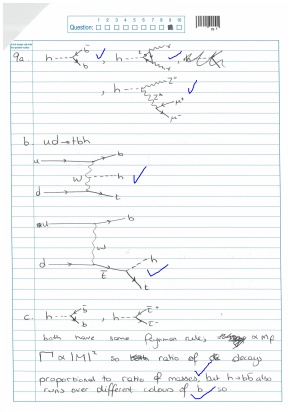 1 2 3 4 5 6 7 8 9 10
Question:
9a. h b̄ b , h γ γ ,
, h Z⁰ Z⁰* μ⁺ μ⁻
b. ud→tbh
u b
W h
d t
u b
W
d h
t̄ t
c. h b̄ b , h τ⁺ τ⁻
both have same Feynman rule, ∝ mf
Γ ∝ |M|² so ratio of decays
proportional to ratio of masses, but h→bb̄ also
runs over different colours of b so